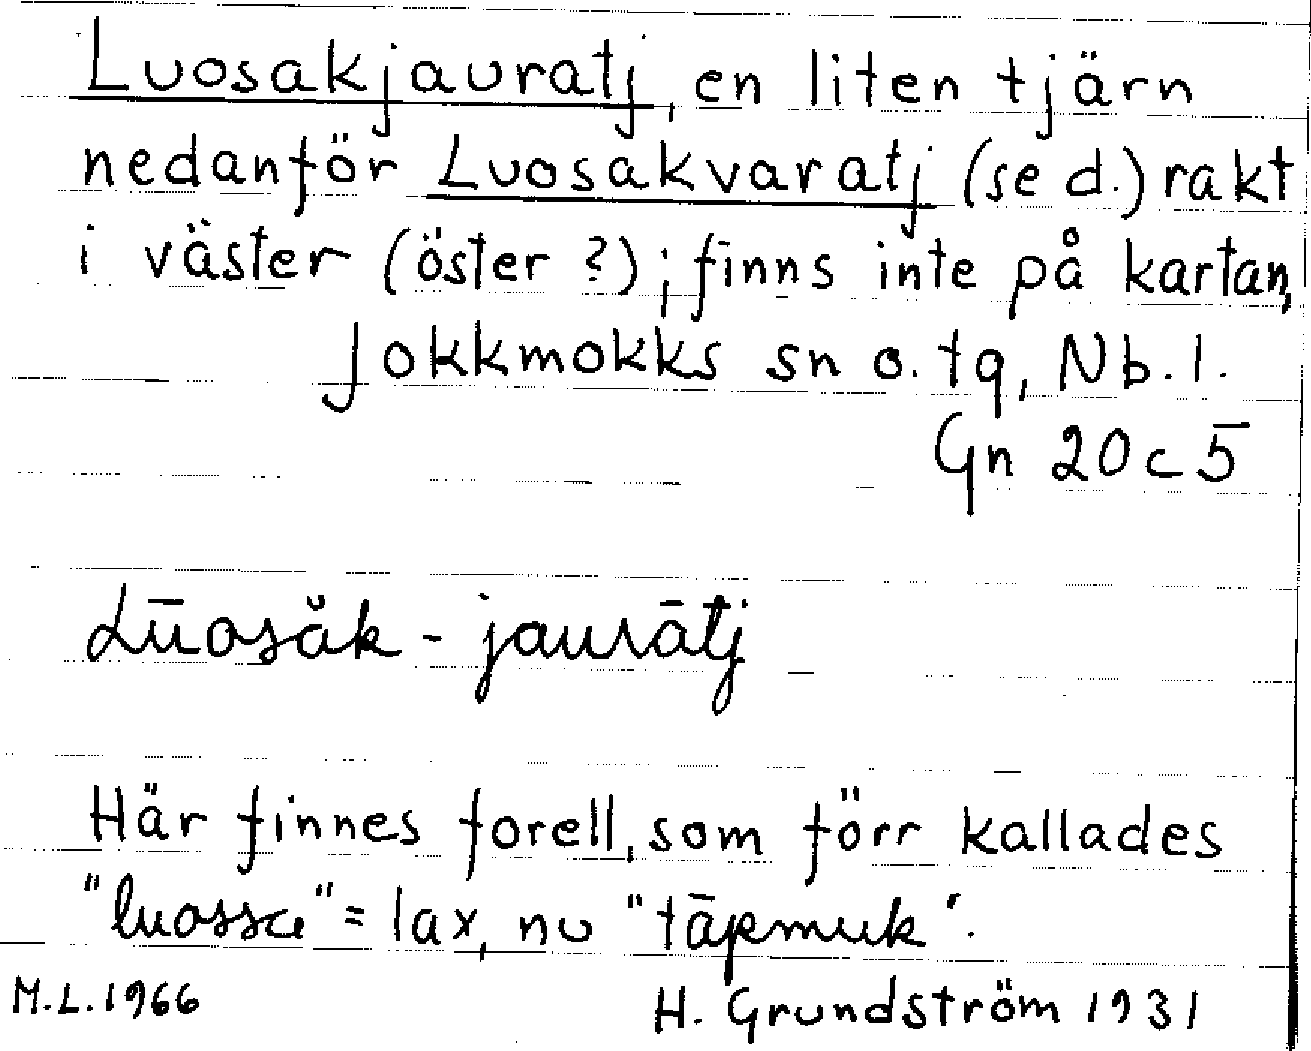 Luosakjauratj, en liten tjärn
nedanför Luosakvaratj (se d.) rakt
i väster (öster ?); finns inte på kartan,
Jokkmokks sn o. tg, Nb. l.
Gn 20 c 5
Lūosăk - jaurātj
Här finnes forell, som förr kallades
"luossa" = lax, nu "tāpmuk".
M.L. 1966
H. Grundström 1931